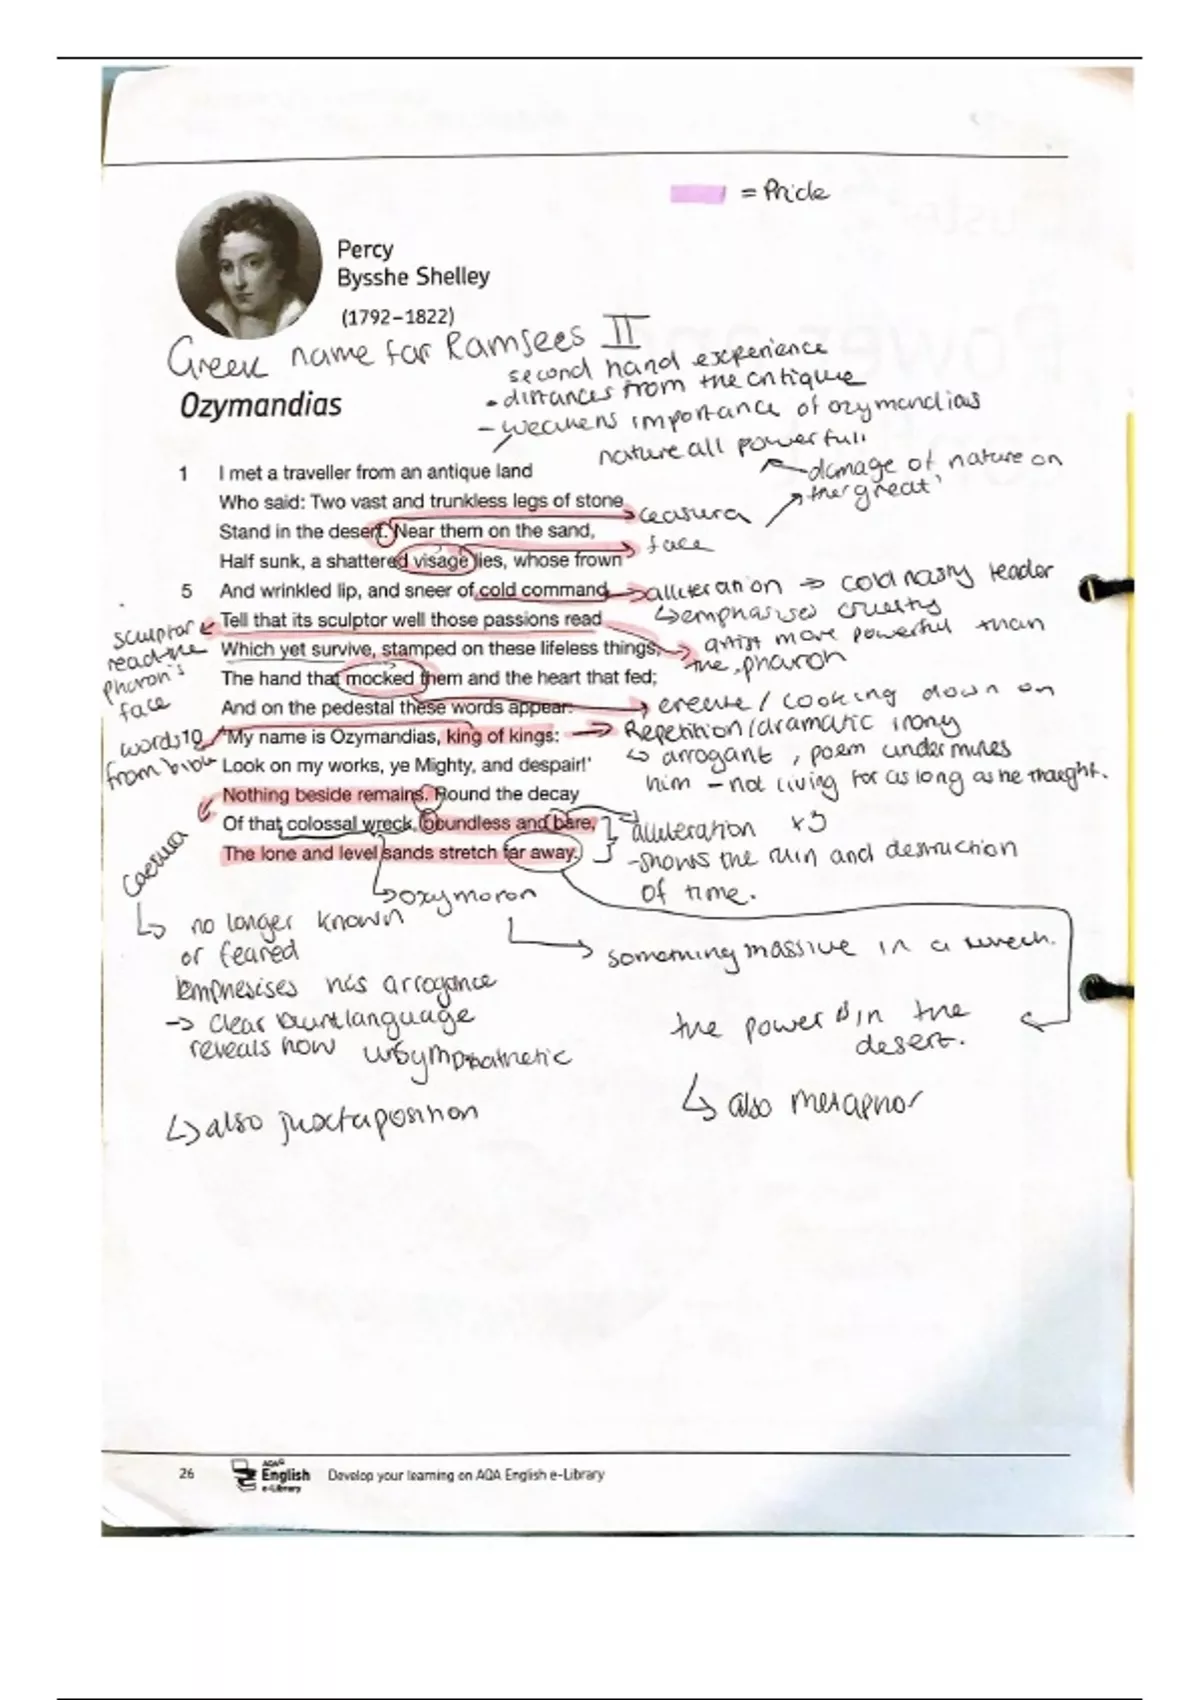 = Pride
Percy
Bysshe Shelley
(1792–1822)
Greek name for Ramsees II
second hand experience
- distances from the critique
- weakens importance of ozymandias
nature all powerful.
damage of nature on
the 'great'
Ozymandias
1 I met a traveller from an antique land
Who said: Two vast and trunkless legs of stone
ceasura
Stand in the desert. Near them on the sand,
face
Half sunk, a shattered visage lies, whose frown
5 And wrinkled lip, and sneer of cold command,
alliteration → cold nasty leader
↳ emphasises cruelty
Tell that its sculptor well those passions read
sculptor
read the
pharoh's
face
artist more powerful than
the pharoh
Which yet survive, stamped on these lifeless things,
The hand that mocked them and the heart that fed;
create / looking down on
And on the pedestal these words appear:
Repetition/dramatic irony
↳ arrogant, poem undermines
him - not living for as long as he thought.
words
from bible
10 'My name is Ozymandias, king of kings:
Look on my works, ye Mighty, and despair!'
Nothing beside remains. Round the decay
Of that colossal wreck, boundless and bare,
The lone and level sands stretch far away.'
alliteration x3
- shows the ruin and destruction
of time.
caesura
↳ no longer known
or feared
emphesises his arrogance
→ clear blunt language
reveals how unsympathetic
↳ also juxtaposition
↳ oxymoron
→ something massive in a wreck.
the power is in the
desert.
↳ also metaphor
26
AQA
English
e-Library
Develop your learning on AQA English e-Library